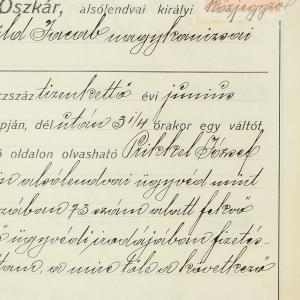 Oszkár, alsólendvai királyi közjegyző
ld Jacab nagykanizsai
czszáz tizenkettő évi junius
pján, délután 3 1/4 órakor egy váltót,
ó oldalon olvasható Prikkel József
n alsólendvai ügyvéd mint
zában 73 szám alatt fekvő
ő ügyvédi irodájában fizetés-
ttam, a mire tőle a következő